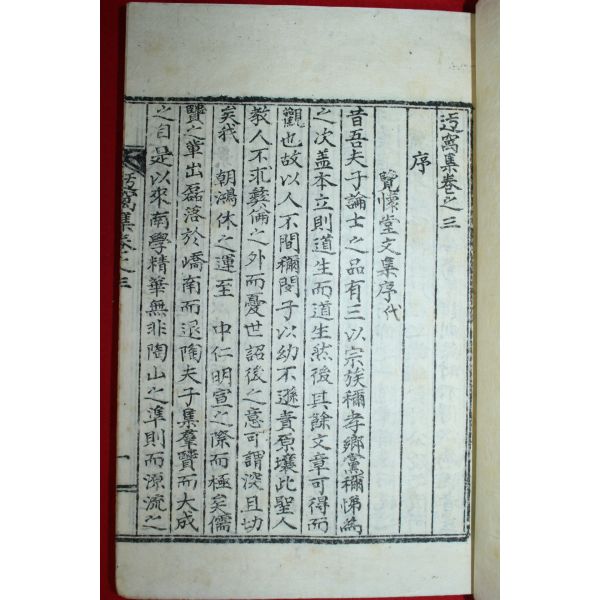 迃窩集卷之三
序
覽懷堂文集序代
昔吾夫子論士之品有三以宗族稱孝鄕黨稱悌爲
之次盖本立則道生而道生然後其餘文章可得而
觀也故以人不間稱閔子以幼不遜責原壤此聖人
敎人不外彜倫之外而憂世詔後之意可謂深且切
矣我 朝鴻休之運至 中仁明宣之際而極矣儒
賢之輩出磊落於嶠南而退陶夫子集羣賢而大成
之自是以來南學精華無非陶山之準則而源流之
迃窩集卷之三
一